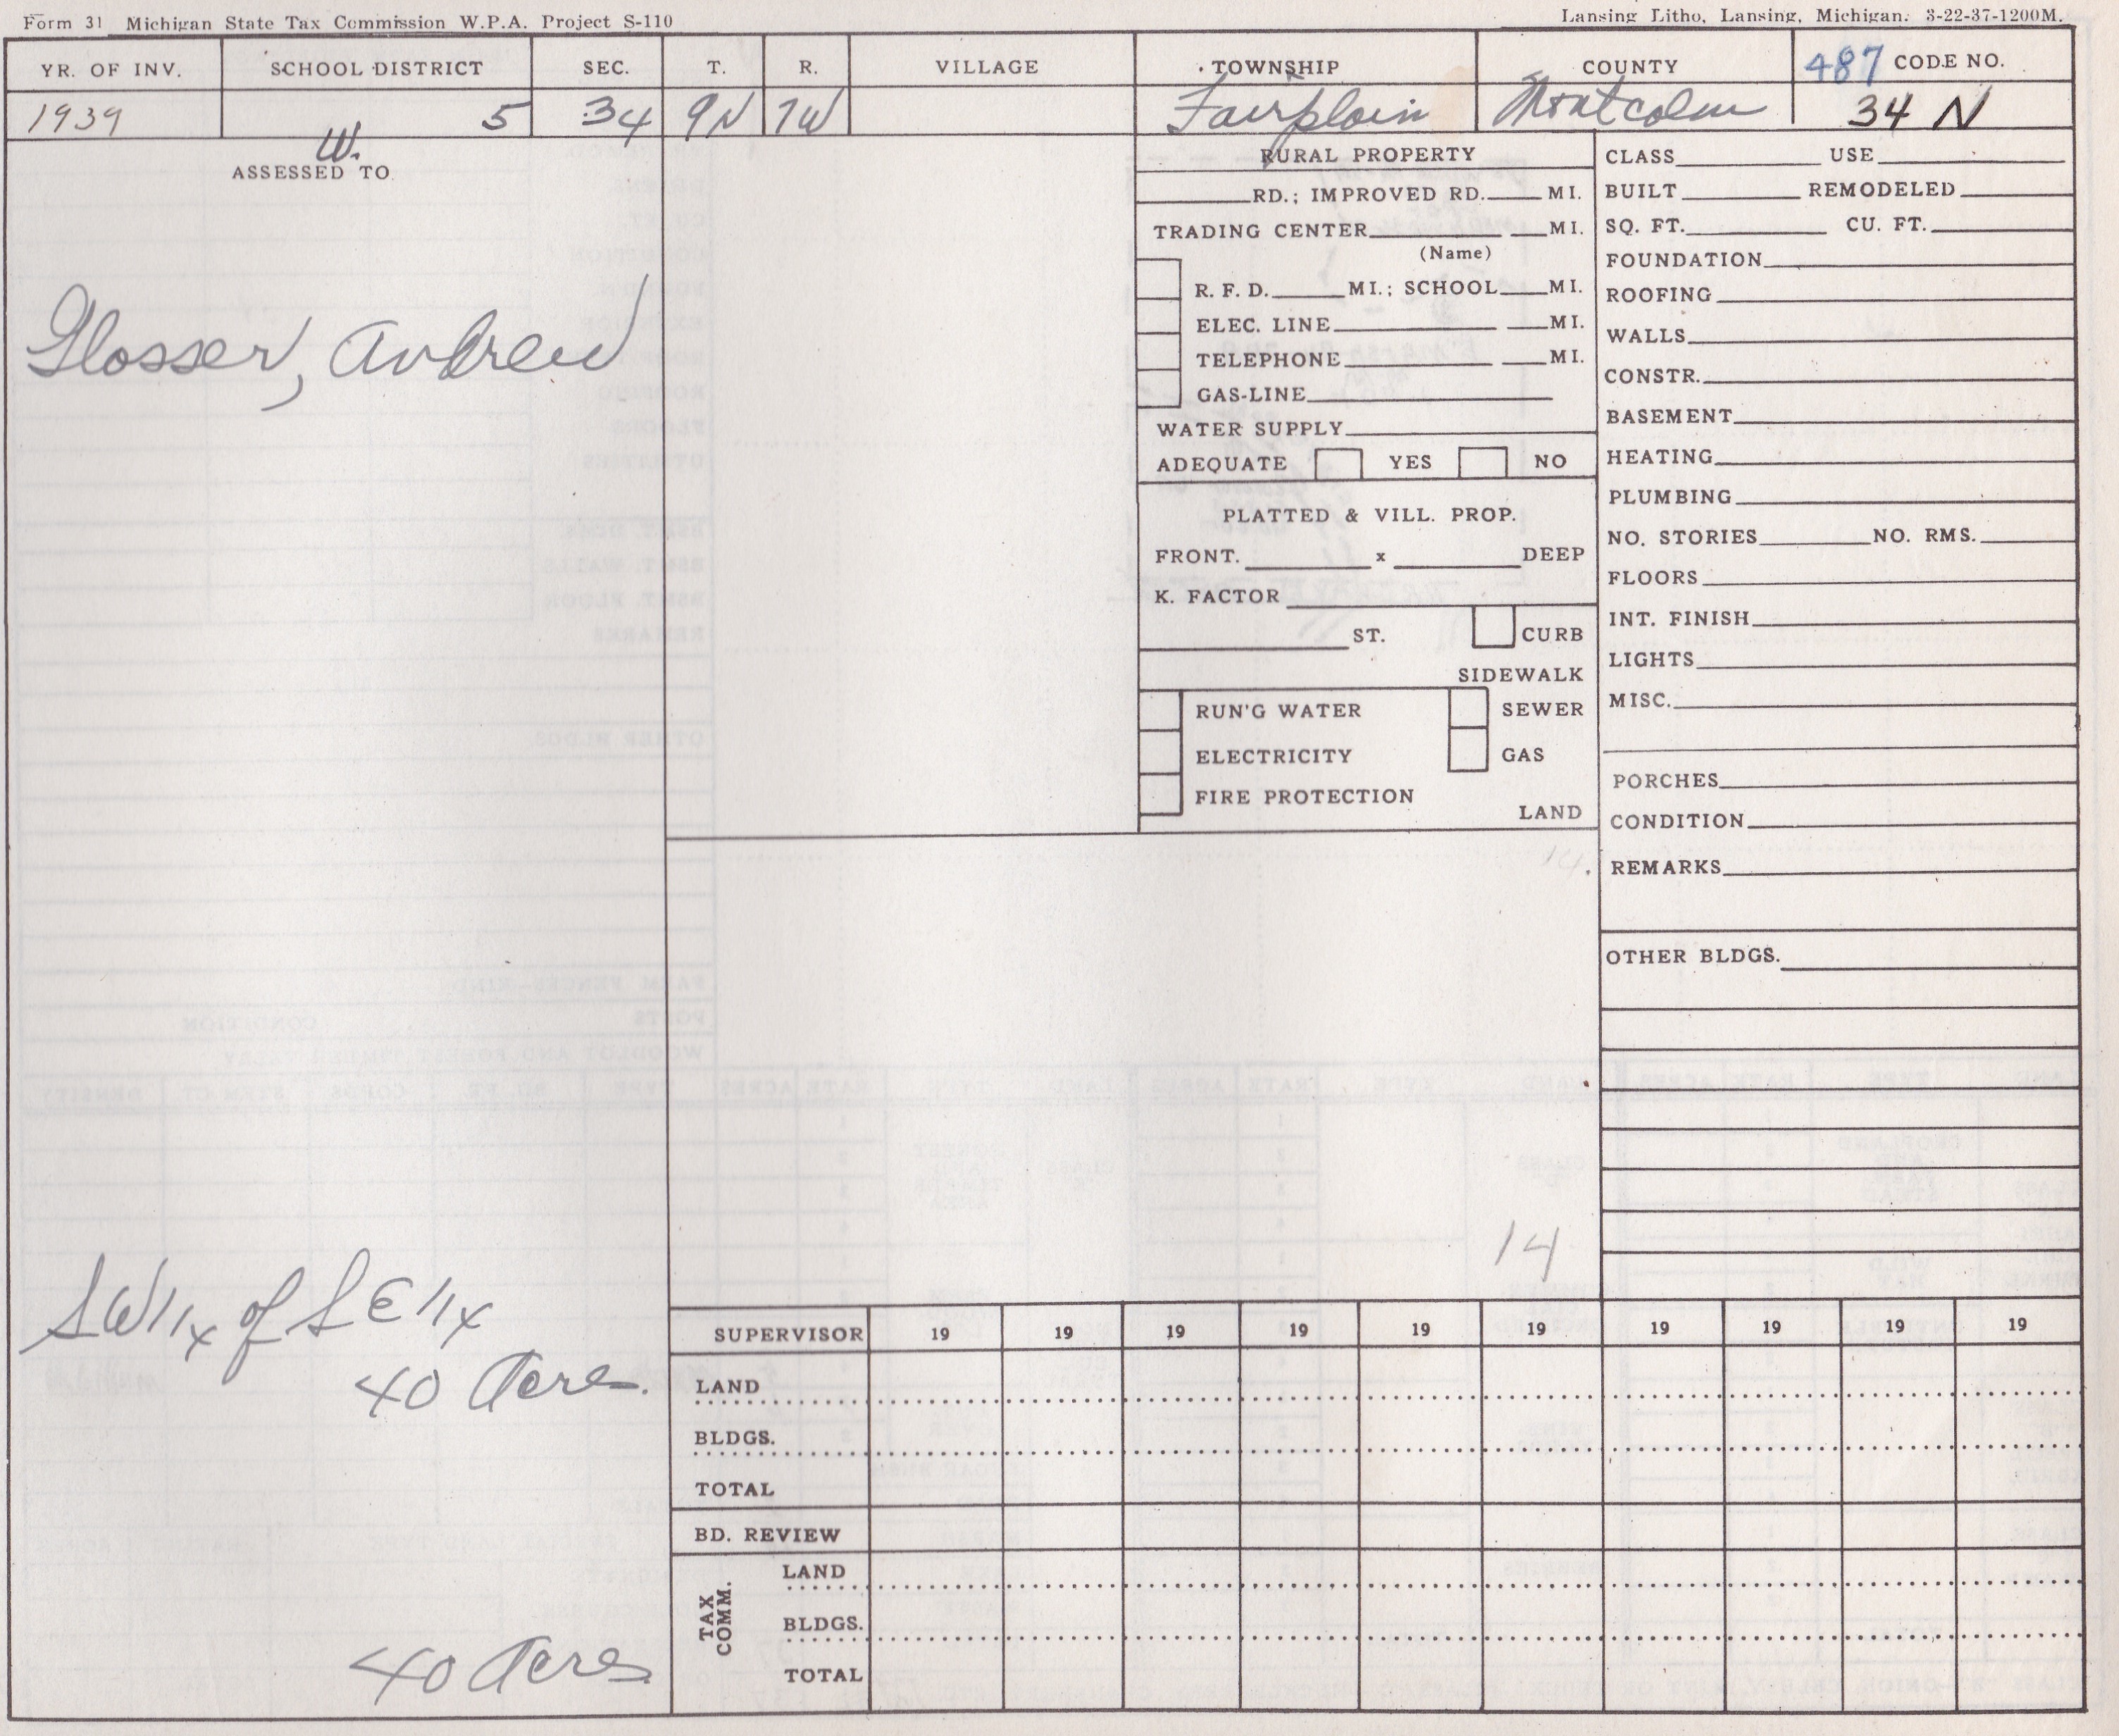 Form 31 Michigan State Tax Commission W.P.A. Project S-110
Lansing Litho, Lansing, Michigan. 3-22-37-1200M.
YR. OF INV. SCHOOL DISTRICT SEC. T. R. VILLAGE TOWNSHIP COUNTY 487 CODE NO.
1939 5 34 9N 7W Fairplain Montcolm 34 N
W.
ASSESSED TO
Glosser, Andrew
SW1/4 of SE1/4
40 Acres.
40 Acres
RURAL PROPERTY
RD.; IMPROVED RD. MI.
TRADING CENTER MI.
(Name)
R. F. D. MI.; SCHOOL MI.
ELEC. LINE MI.
TELEPHONE MI.
GAS-LINE
WATER SUPPLY
ADEQUATE YES NO
PLATTED & VILL. PROP.
FRONT. x DEEP
K. FACTOR
ST. CURB
SIDEWALK
RUN'G WATER SEWER
ELECTRICITY GAS
FIRE PROTECTION
LAND
14
CLASS USE
BUILT REMODELED
SQ. FT. CU. FT.
FOUNDATION
ROOFING
WALLS
CONSTR.
BASEMENT
HEATING
PLUMBING
NO. STORIES NO. RMS.
FLOORS
INT. FINISH
LIGHTS
MISC.
PORCHES
CONDITION
REMARKS
OTHER BLDGS.
SUPERVISOR 19 19 19 19 19 19 19 19 19 19
LAND
BLDGS.
TOTAL
BD. REVIEW
TAX COMM.
LAND
BLDGS.
TOTAL